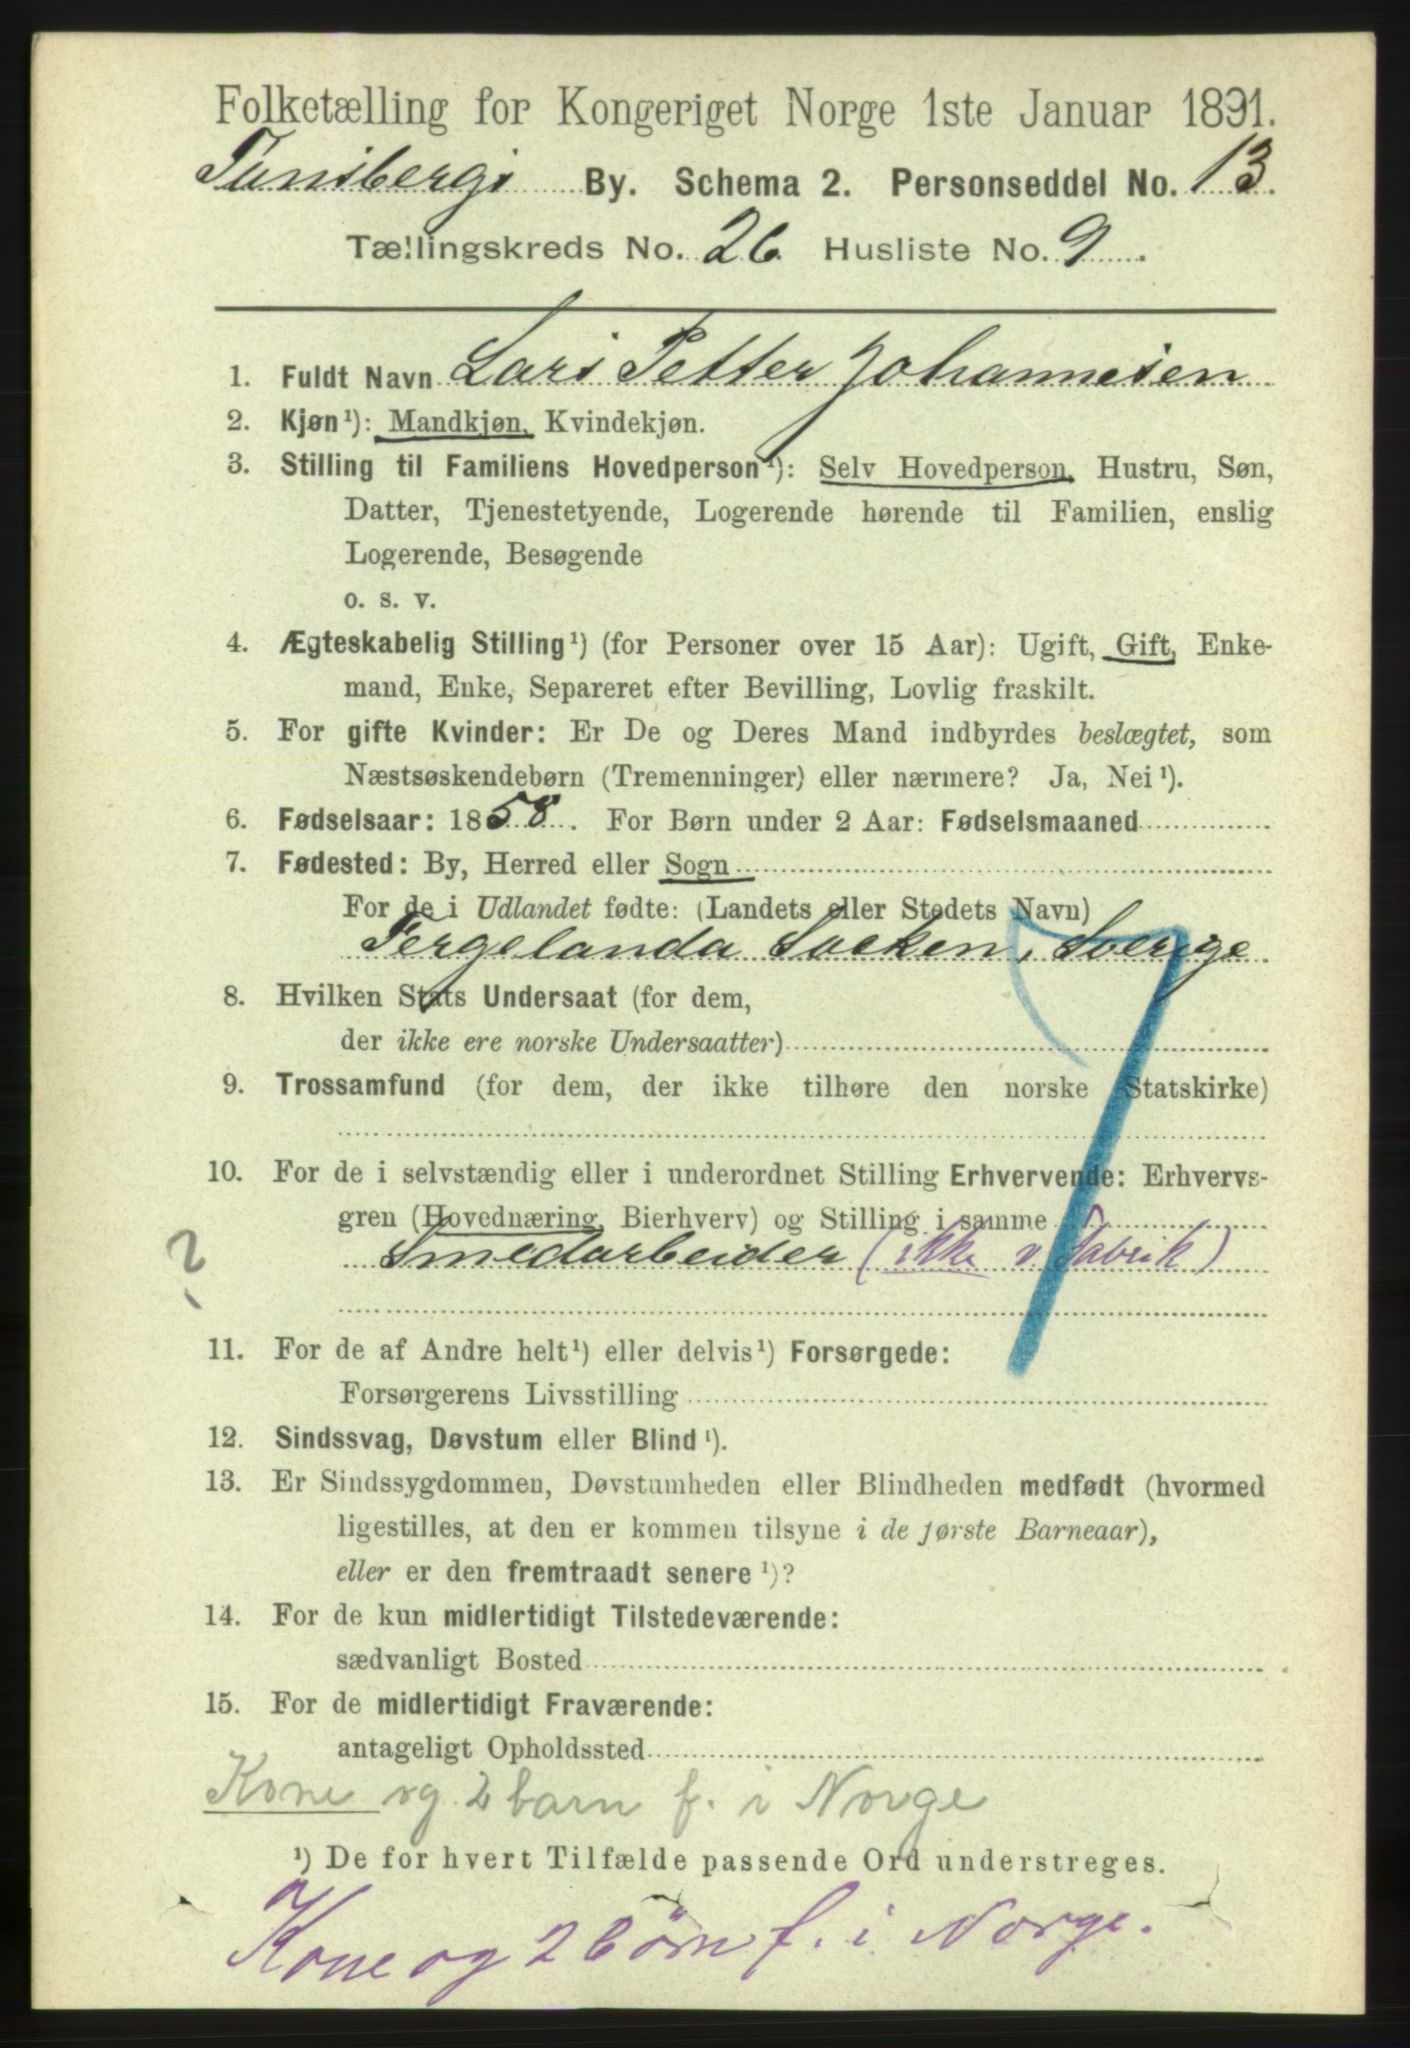 Folketælling for Kongeriget Norge 1ste Januar 1891.
Tunsbergs By. Schema 2. Personseddel No. 13.
Tællingskreds No. 26 Husliste No. 9.
1. Fuldt Navn Lars Petter Johannesen
2. Kjøn¹): Mandkjøn, Kvindekjøn.
3. Stilling til Familiens Hovedperson¹): Selv Hovedperson, Hustru, Søn,
Datter, Tjenestetyende, Logerende hørende til Familien, enslig
Logerende, Besøgende
o. s. v.
4. Ægteskabelig Stilling¹) (for Personer over 15 Aar): Ugift, Gift, Enke-
mand, Enke, Separeret efter Bevilling, Lovlig fraskilt.
5. For gifte Kvinder: Er De og Deres Mand indbyrdes beslægtet, som
Næstsøskendebørn (Tremenninger) eller nærmere? Ja, Nei¹).
6. Fødselsaar: 1858. For Børn under 2 Aar: Fødselsmaaned
7. Fødested: By, Herred eller Sogn
For de i Udlandet fødte: (Landets eller Stedets Navn)
Fergelanda Socken, Sverige
8. Hvilken Stats Undersaat (for dem,
der ikke ere norske Undersaatter)
9. Trossamfund (for dem, der ikke tilhøre den norske Statskirke)
10. For de i selvstændig eller i underordnet Stilling Erhvervende: Erhvervs-
gren (Hovednæring, Bierhverv) og Stilling i samme
? Smedarbeider (ikke v. Fabrik)
11. For de af Andre helt¹) eller delvis¹) Forsørgede:
Forsørgerens Livsstilling
12. Sindssvag, Døvstum eller Blind¹).
13. Er Sindssygdommen, Døvstumheden eller Blindheden medfødt (hvormed
ligestilles, at den er kommen tilsyne i de første Barneaar),
eller er den fremtraadt senere¹)?
14. For de kun midlertidigt Tilstedeværende:
sædvanligt Bosted
15. For de midlertidigt Fraværende:
antageligt Opholdssted
Kone og 2 barn f. i Norge
¹) De for hvert Tilfælde passende Ord understreges.
Kone og 2 börn f. i Norge.